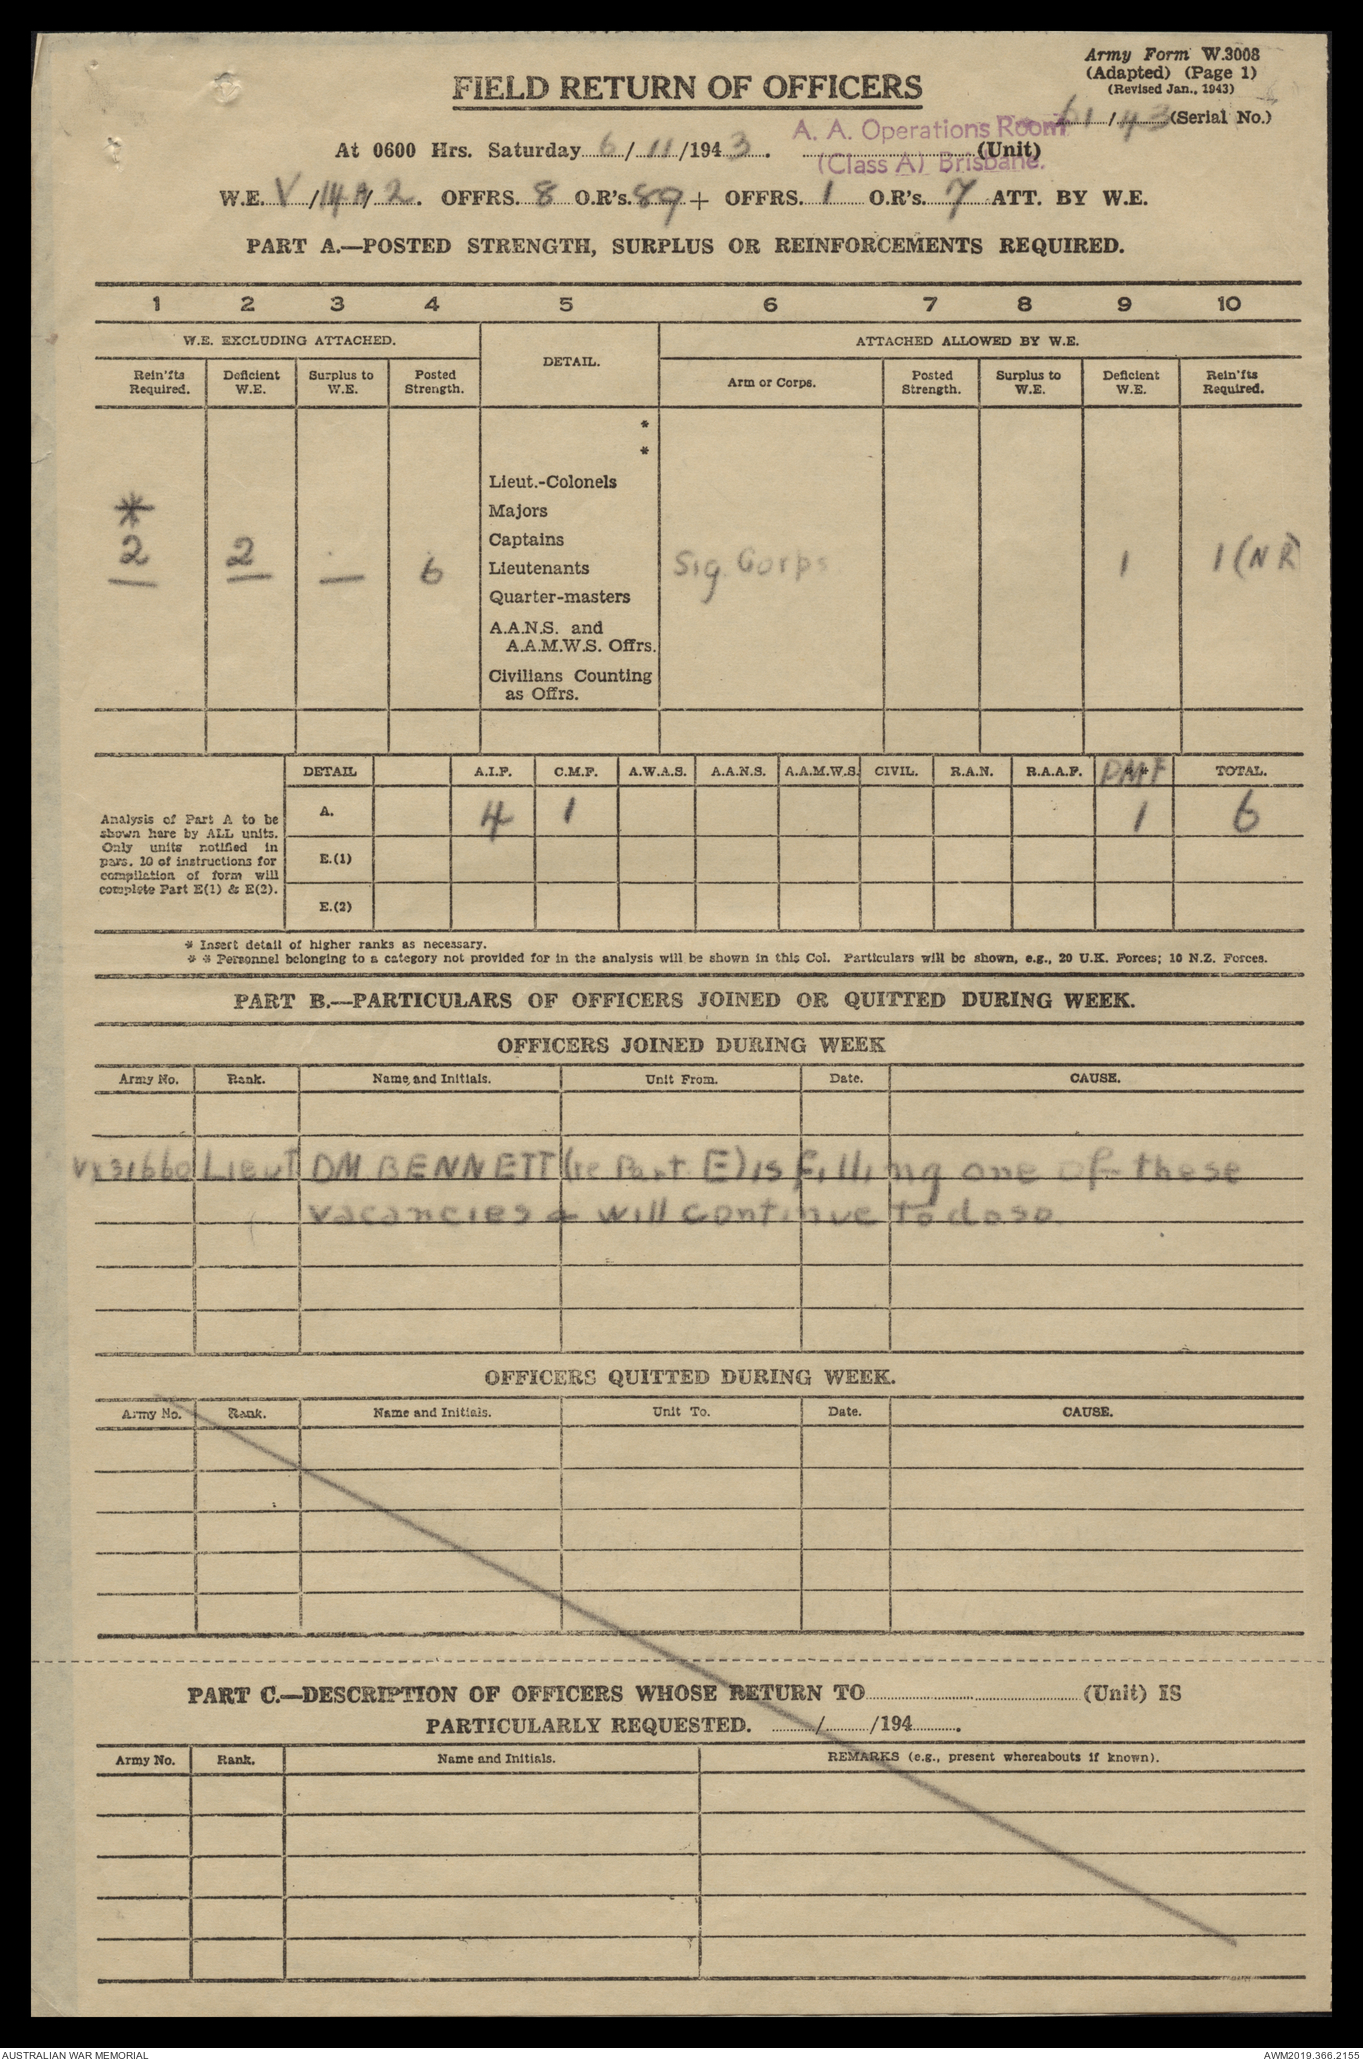 Army Form W.3008
(Adapted) (Page 1)
(Revised Jan., 1943)
FIELD RETURN OF OFFICERS
61/43 (Serial No.)
A. A. Operations Room
At 0600 Hrs. Saturday 6/11/1943. (Unit)
(Class A) Brisbane.
W.E. V/14A/2. OFFRS. 8 O.R's. 89 + OFFRS. 1 O.R's. 7 ATT. BY W.E.
PART A.—POSTED STRENGTH, SURPLUS OR REINFORCEMENTS REQUIRED.
1 2 3 4 5 6 7 8 9 10
W.E. EXCLUDING ATTACHED. DETAIL. ATTACHED ALLOWED BY W.E.
Rein'fts Required. Deficient W.E. Surplus to W.E. Posted Strength. Arm or Corps. Posted Strength. Surplus to W.E. Deficient W.E. Rein'fts Required.
*
*
Lieut.-Colonels
* Majors
Captains
2 2 — 6 Lieutenants Sig. Corps 1 1 (NR)
Quarter-masters
A.A.N.S. and
A.A.M.W.S. Offrs.
Civilians Counting
as Offrs.
DETAIL A.I.F. C.M.F. A.W.A.S. A.A.N.S. A.A.M.W.S. CIVIL. R.A.N. R.A.A.F. ** PMF TOTAL.
A. 4 1 1 6
Analysis of Part A to be
shown here by ALL units.
Only units notified in
pars. 10 of instructions for
compilation of form will
complete Part E(1) & E(2).
E.(1)
E.(2)
* Insert detail of higher ranks as necessary.
* * Personnel belonging to a category not provided for in the analysis will be shown in this Col. Particulars will be shown, e.g., 20 U.K. Forces; 10 N.Z. Forces.
PART B.—PARTICULARS OF OFFICERS JOINED OR QUITTED DURING WEEK.
OFFICERS JOINED DURING WEEK
Army No. Rank. Name and Initials. Unit From. Date. CAUSE.
VX31660 LIEUT DM BENNETT (re Part E) is filling one of these
vacancies & will continue to do so.
OFFICERS QUITTED DURING WEEK.
Army No. Rank. Name and Initials. Unit To. Date. CAUSE.
PART C.—DESCRIPTION OF OFFICERS WHOSE RETURN TO (Unit) IS
PARTICULARLY REQUESTED. / /194 .
Army No. Rank. Name and Initials. REMARKS (e.g., present whereabouts if known).
AUSTRALIAN WAR MEMORIAL AWM2019.366.2155